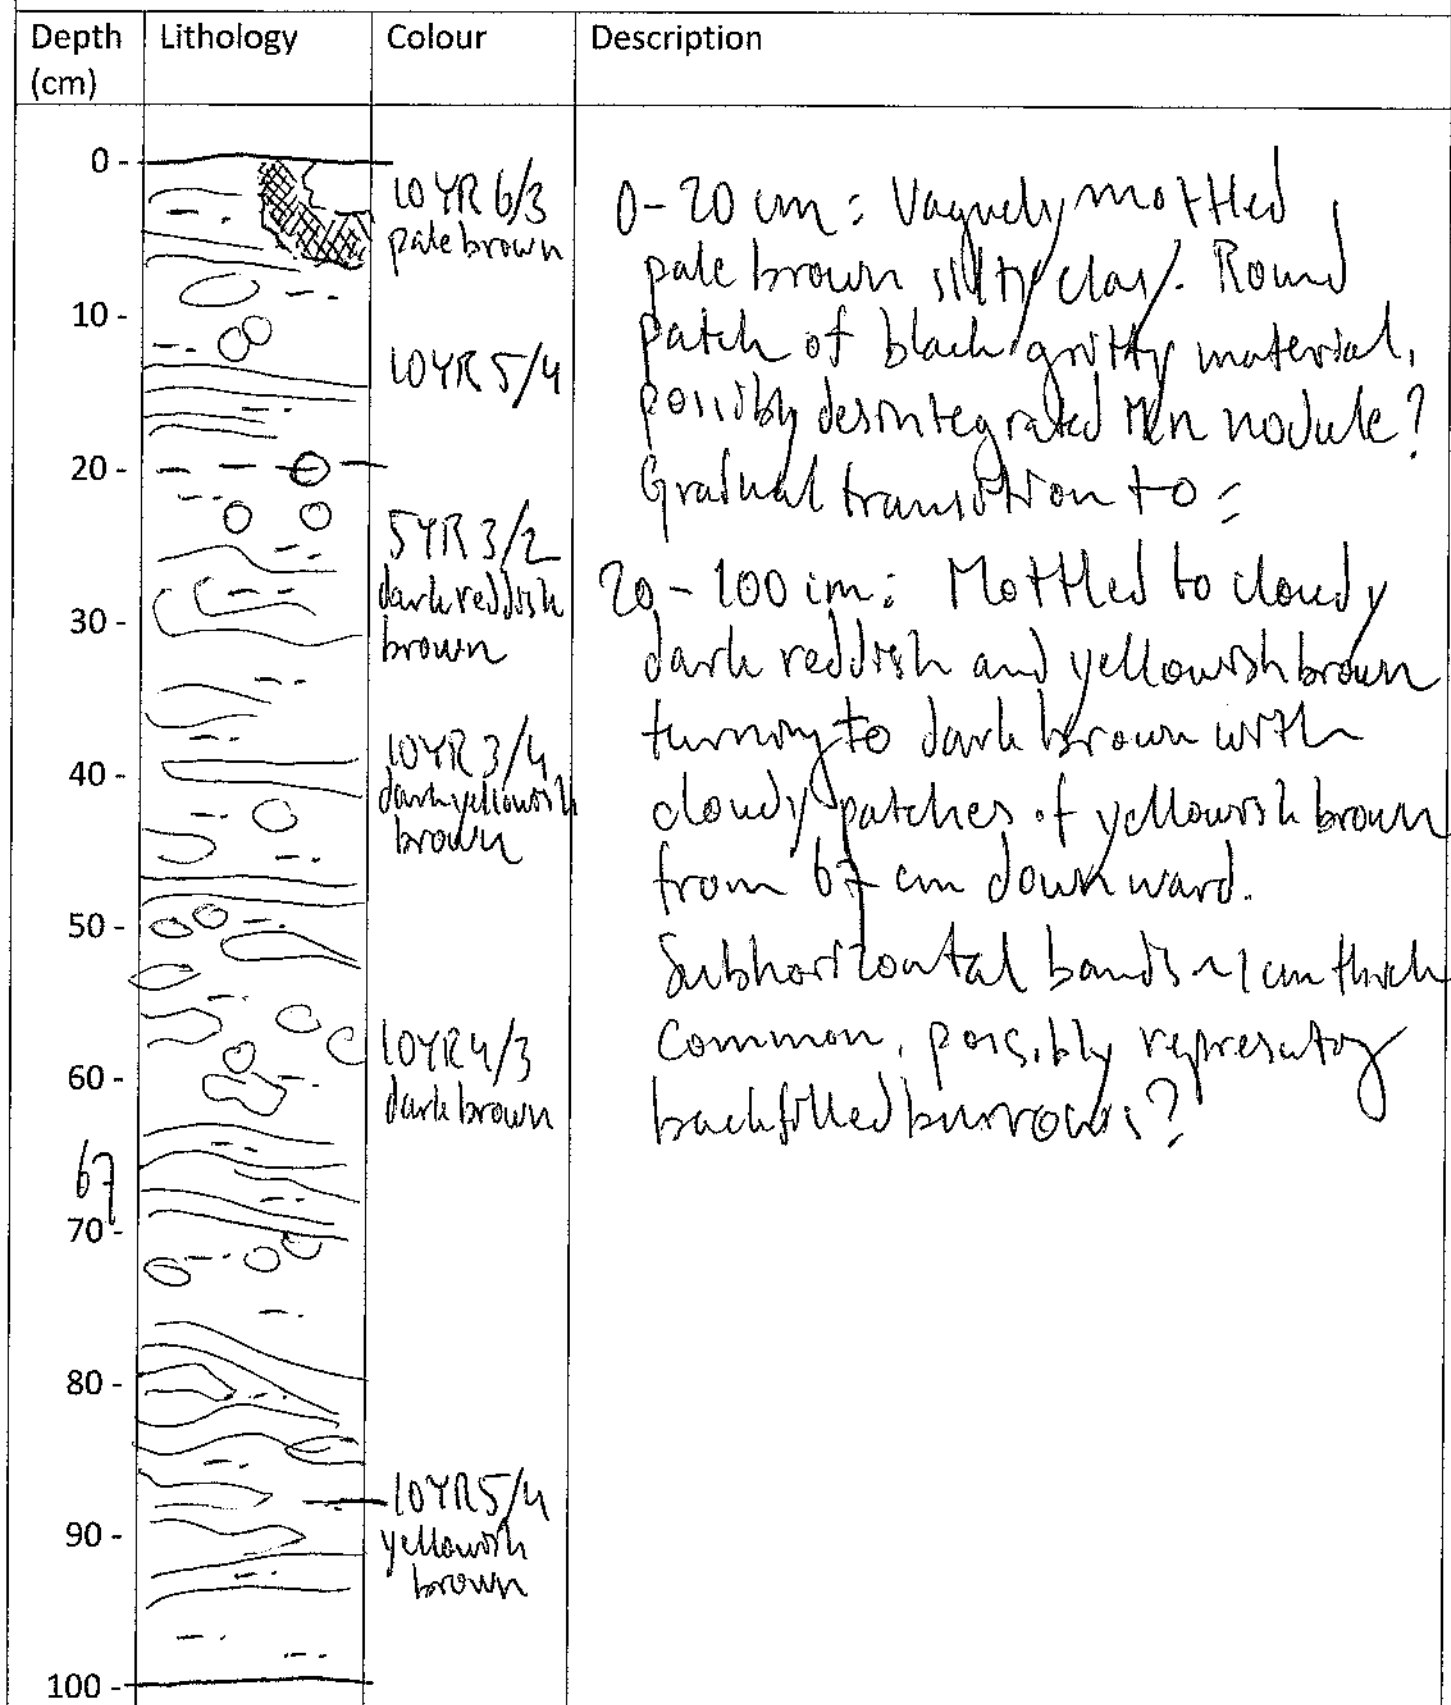 Depth Lithology Colour Description
(cm)
0 -
10 -
20 -
30 -
40 -
50 -
60 -
67
70 -
80 -
90 -
100 -
10YR 6/3
pale brown
10YR 5/4
5YR 3/2
dark reddish
brown
10YR 3/4
dark yellowish
brown
10YR 4/3
dark brown
10YR 5/4
yellowish
brown
0-20 cm: Vaguely mottled
pale brown silty clay. Round
patch of black gritty material,
possibly desintegrated Mn nodule?
Gradual transition to:
20-100 cm: Mottled to cloudy
dark reddish and yellowish brown
turning to dark brown with
cloudy patches of yellowish brown
from 67 cm downward.
Subhorizontal bands ~1 cm thick
common, possibly representing
backfilled burrows?